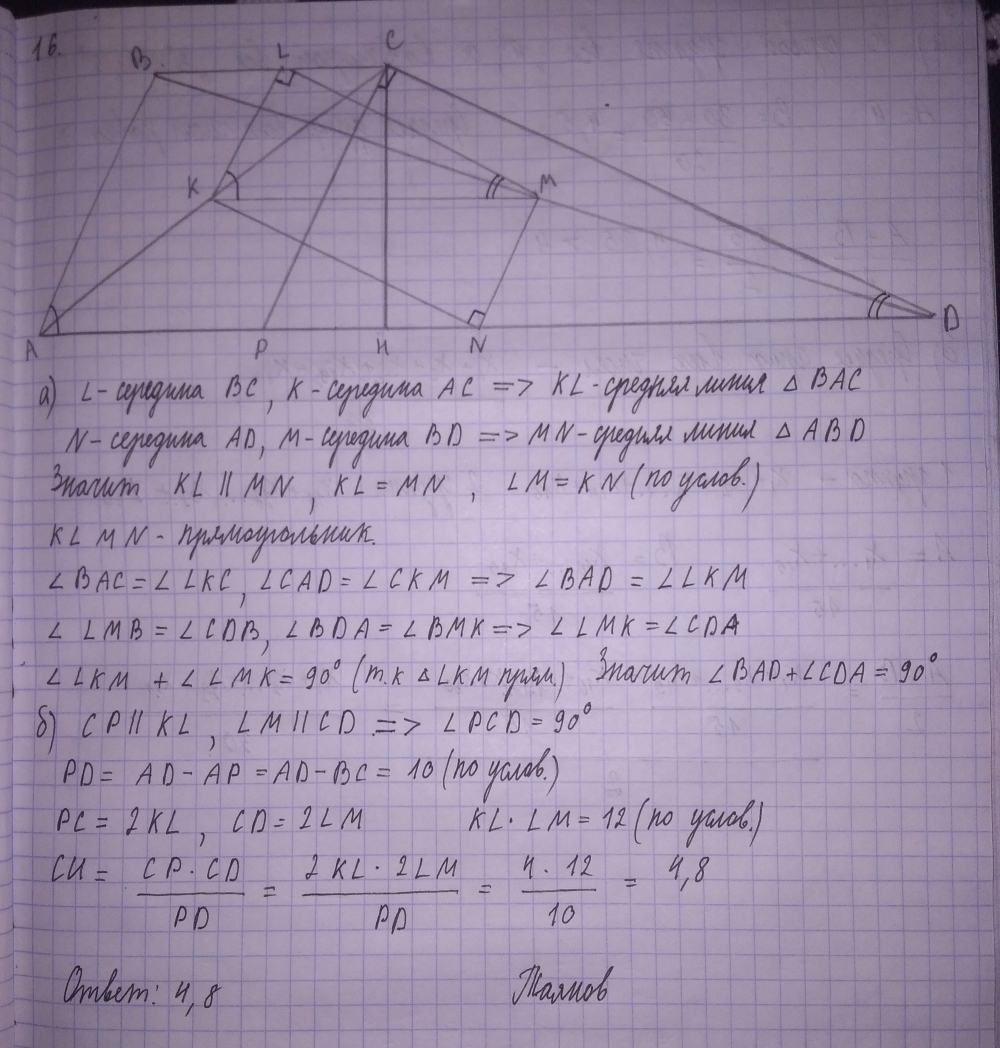 16.
B L C
K M
A P H N D
а) L-середина BC, K-середина AC => KL-средняя линия △ BAC
N-середина AD, M-середина BD => MN-средняя линия △ ABD
Значит KL || MN, KL = MN, LM = KN (по услов.)
KLMN - прямоугольник.
∠BAC = ∠LKC, ∠CAD = ∠CKM => ∠BAD = ∠LKM
∠LMB = ∠CDB, ∠BDA = ∠BMK => ∠LMK = ∠CDA
∠LKM + ∠LMK = 90° (т.к △LKM прям.) Значит ∠BAD + ∠CDA = 90°
б) CP || KL, LM || CD => ∠PCD = 90°
PD = AD - AP = AD - BC = 10 (по услов.)
PC = 2KL, CD = 2LM KL · LM = 12 (по услов.)
CH = CP · CD / PD = 2KL · 2LM / PD = 4 · 12 / 10 = 4,8
Ответ: 4,8 Таянов